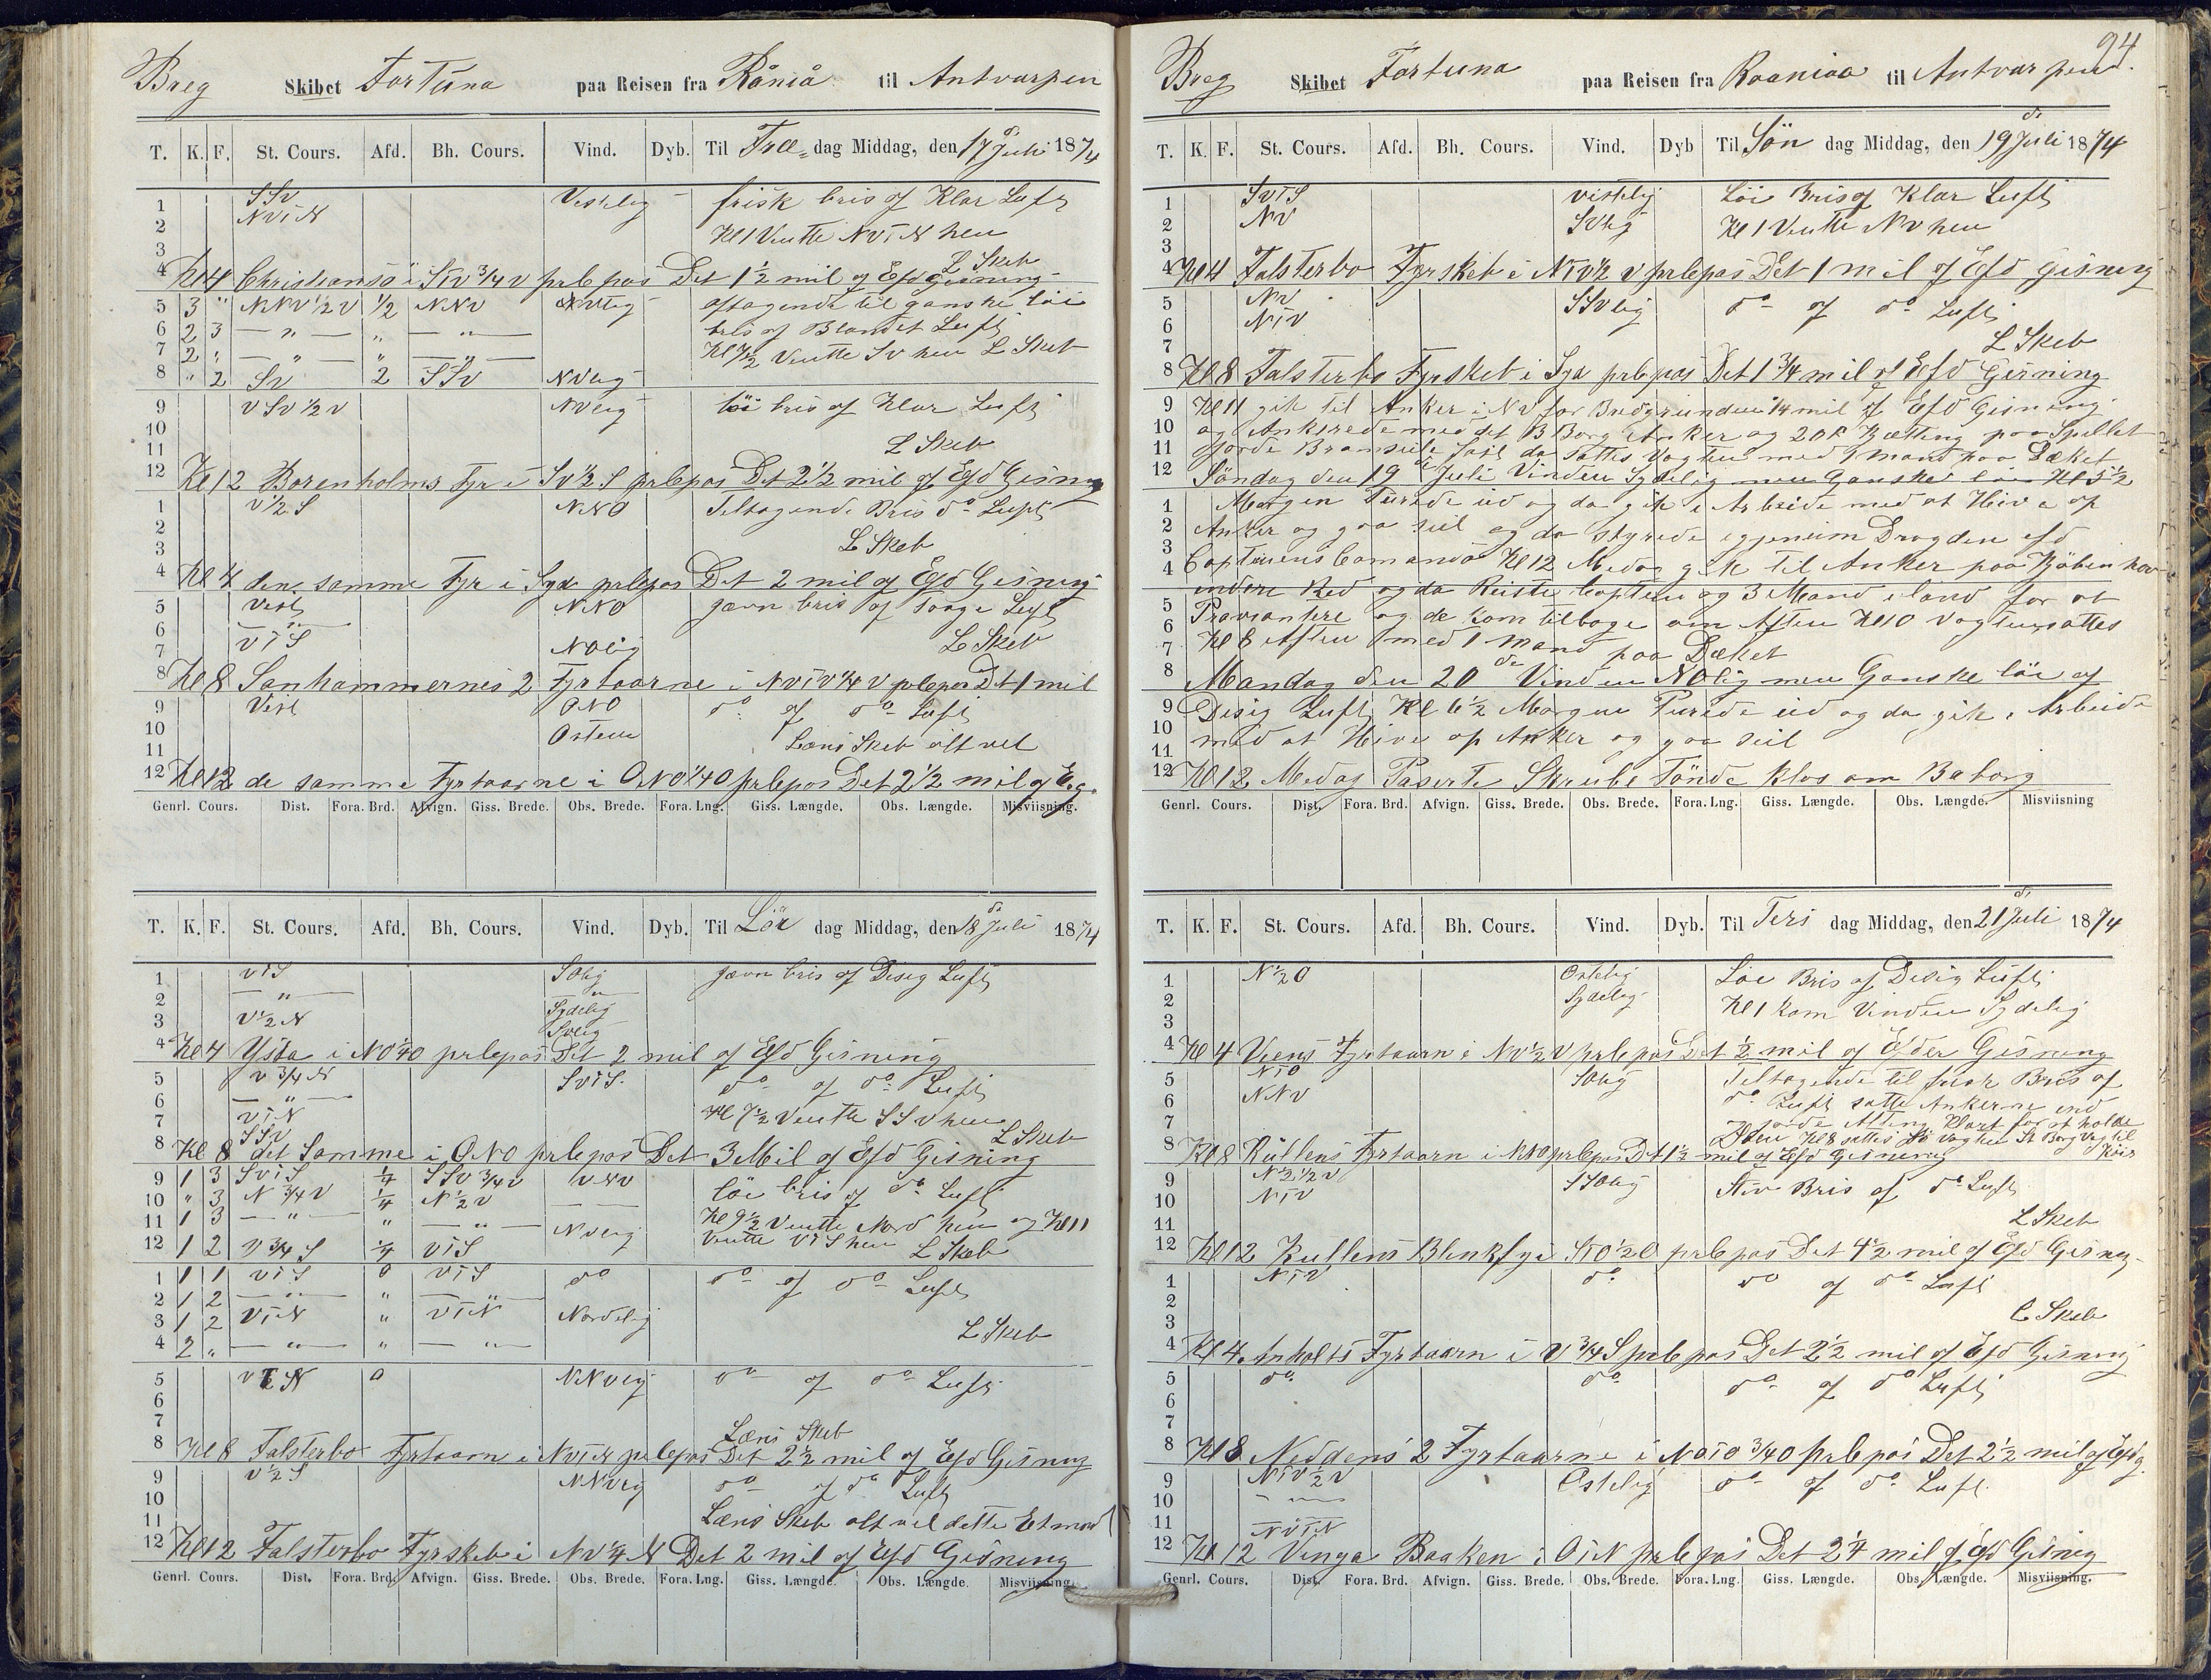 Breg Skibet Fortuna paa Reisen fra Råniå til Antvarpen
T. K. F. St. Cours. Afd. Bh. Cours. Vind. Dyb. Til Fre dag Middag, den 17 de Juli 1874
1 SSv Vestelig frisk bris of Klar Luft
2 NViN Kl 1 Vente NViN hen
3 L Skeb
4 Kl 4 Christiansö i SiV 3/4 v prlepas Det 1 1/2 mil of Efd Gisning
5 3 " NNV 1/2 V 1/2 NNV aftagende til ganske löi
6 2 3 — " — " — " — bris of Blandet Luft
7 2 " — " — " — " — Kl 7 1/2 Vente Sv hen L Skeb
8 " 2 Sv 2 SSv NVlig
9 VSv 1/2 V NVlig löi bris of Klar Luft
10
11 L Skeb
12 Kl 12 Borenholms Fyr i Sv 1/2 S prlepas Det 2 1/2 mil of Efd Gisning
1 V 1/2 S NNO Teltagende Bris do Luft
2
3 L Skeb
4 Kl 4 den samme Fyr i Syd prlepas Det 2 mil of Efd Gisning
5 Vest NNO jævn bris of Taage Luft
6 — " —
7 ViS NOlig L Skeb
8 Kl 8 Sanhammernes 2 Fyrtaarne i NViV 1/4 V prlepas Det 1 mil
9 Vest ONO do of do Luft
10 Osten
11 Læns Skeb alt vel
12 Kl 12 de samme Fyrtaarne i ONO 1/4 O prlepas Det 2 1/2 mil of E.g.
Genrl. Cours. Dist. Fora. Brd. Afvign. Giss. Brede. Obs. Brede. Fora. Lng. Giss. Længde. Obs. Længde. Misviisning.
T. K. F. St. Cours. Afd. Bh. Cours. Vind. Dyb. Til Lör dag Middag, den 18 de Juli 1874
1 ViS SOlig jævn bris of Diseg Luft
2 — " — — " —
3 V 1/2 N Sydelig
Svlig
4 Kl 4 Ysta i NO 1/4 O prlepas Det 2 mil of Efd Gisning
5 V 3/4 N SViS. do of do Luft
6 — " —
7 ViN Kl 7 1/2 Vente SSv hen
SSv L Skeb
8 Kl 8 det Samme i ONO prlepas Det 3 Mil of Efd Gisning
9 1 3 SViS 1/4 SSv 3/4 V VNV löi bris of do Luft
10 " 3 N 3/4 V 1/4 N 1/2 V
11 1 3 — " — " — " — NVlig Kl 9 1/2 Vente Nord hen og Kl 11
12 1 2 V 3/4 S 1/4 ViS Vente ViS hen L Skeb
1 1 1 ViS 0 ViS do do of do Luft
2 1 2 — " — " — " —
3 1 2 ViN " ViN Nordelig
4 2 " — " — " — " — L Skeb
5 ViN 0 NNVlig do of do Luft
6
7 Læns Skeb
8 Kl 8 Falsterbo Fyrtaarn i NViN prlepas Det 2 1/2 mil of Efd Gisning
9 V 1/2 S NNVlig do of do Luft
10
11 Læns Skeb alt vel dette Etmaal
12 Kl 12 Falsterbo Fyrskeb i NV 1/4 N Det 2 mil of Efd Gisning
Genrl. Cours. Dist. Fora. Brd. Afvign. Giss. Brede. Obs. Brede. Fora. Lng. Giss. Længde. Obs. Længde. Misviisning.
94
Breg Skibet Fortuna paa Reisen fra Raaniaa til Antvarpen.
T. K. F. St. Cours. Afd. Bh. Cours. Vind. Dyb Til Sön dag Middag, den 19 de Juli 1874
1 SViS vestelig Löi Bris of Klar Luft
2 NV SVlig Kl 1 Vente NV hen
3
4 Kl 4 Falsterbo Fyrskeb i NiV 1/2 V prlepas Det 1 mil of Efd Gisning
5 NV SSVlig do of do Luft
6 NiV
7 L Skeb
8 Kl 8 Falsterbo Fyrskeb i Syd prlepas Det 1 3/4 mil of Efd Gisning
9 Kl 11 gik til Anker i NV for Bredgrunden 1/4 mil of Efd Gisning
10 og Ankrede med det B Borg Anker og 20 F Kætting paa Spellet
11 Gjorde Bramseile fast da sattes Vagten med 1 Mand paa Dæket
12 Söndag den 19 de Juli Vinden Sydelig men Ganske löi Kl 5 1/2
1 Morgen Turede ud og da gik i Arbeide med at Hive op
2 Anker og gaa seil og da styrede igjenim Drogden efd
3 Captiens Comando Kl 12 Medag gik til Anker paa Kjöbenhav
4 indere Red og da Reiste Captein og 3 Mand i land for at
5 Proviantere og de kom tilbage om Aften Kl 10 Vagten sattes
6 Kl 8 Aften med 1 Mand paa Dæket
8 Mandag den 20 de Vinden NOlig men Ganske löi of
9 Disig Luft Kl 6 1/2 Morgen Turede ud og da gik i Arbeide
10 med at Hive op Anker og gaa seil
11
12 Kl 12 Medag Paserte Skrube Tönde klos om Baborg
Genrl. Cours. Dist. Fora. Brd. Afvign. Giss. Brede. Obs. Brede. Fora. Lng. Giss. Længde. Obs. Længde. Misviisning
T. K. F. St. Cours. Afd. Bh. Cours. Vind. Dyb. Til Ters dag Middag, den 21 de Juli 1874
1 N 1/2 O Ostelig Löe Bris of Desig Luft
2 Sydelig Kl 1 kom Vinden Sydelig
3
4 Kl 4 Veens Fyrtaarn i NV 1/2 V prlepas Det 1/2 mil of Efder Gisning
5 NiO SOlig Teltagende til frisk Bris of
6 NNV do Luft satte Ankerne ind
7 Gjorde Alting Klart for at holde
Söen Kl 8 sattes Sö Vagten St Borg Vag til Köis
8 Kl 8 Küllens Fyrtaarn i NNO prlepas Det 1 1/2 mil of Efd Gisning
9 N 1/2 V SSOlig Stiv Bris of do Luft
10 NiV
11 L Skeb
12 Kl 12 Kullens Blenkfyr i SiO 1/2 O prlepas Det 4 1/2 mil of Efd Gisning
1 NiV do do of do Luft
2
3 L Skeb
4 Kl 4 Anholts Fyrtaarn i V 3/4 S prlepas Det 2 1/2 mil of Efd Gisning
5 do do do of do Luft
6
7
8 Kl 8 Neddens 2 Fyrtaarne i NOiO 3/4 O prlepas Det 2 1/2 mil of Efd g.
9 NiV 1/2 V Ostelig do of do Luft
10 — " —
11 NViN
12 Kl 12 Vinga Baaken i OiN prlepas Det 2 1/4 mil of Efd Gisnig
Genrl. Cours. Dist. Fora. Brd. Afvign. Giss. Brede. Obs. Brede. Fora. Lng. Giss. Længde. Obs. Længde. Misviisning.